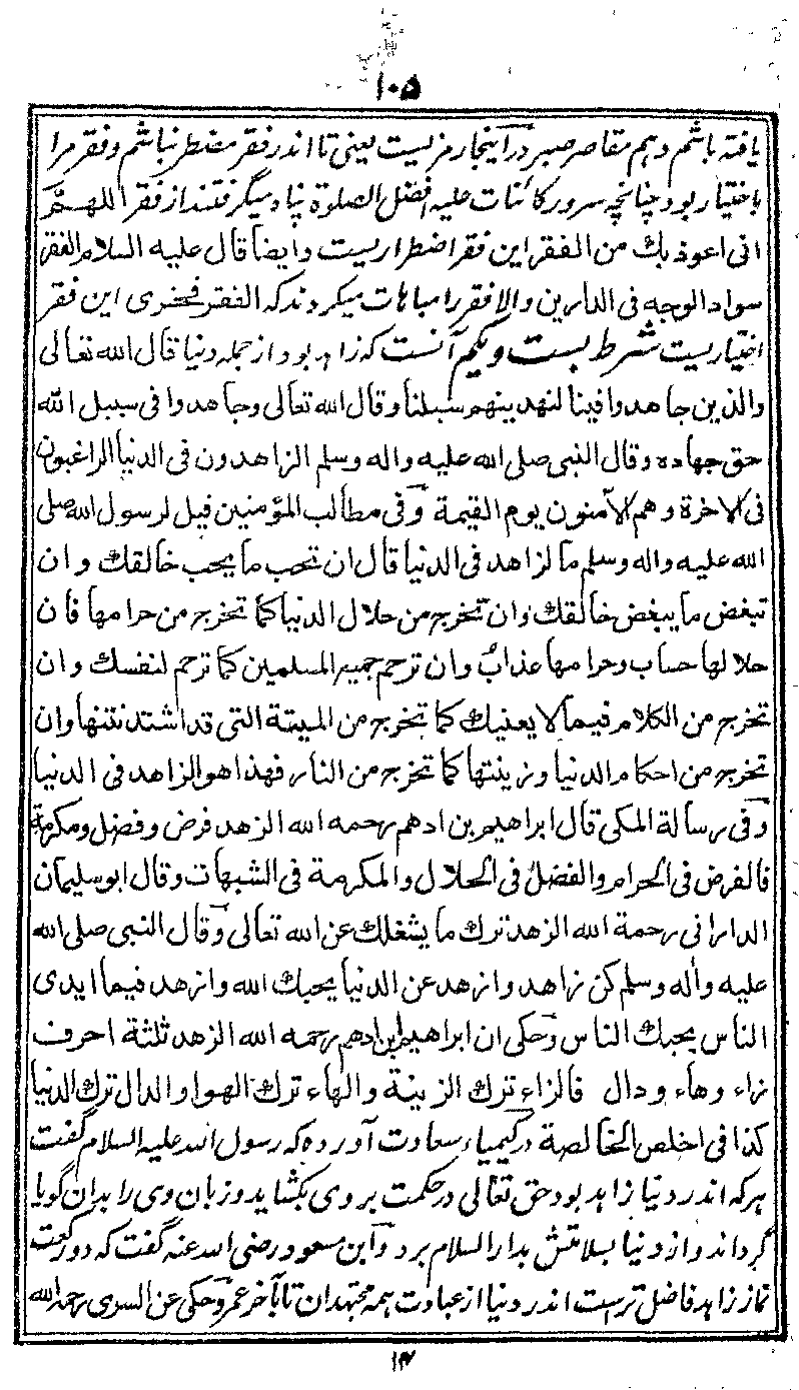 ۱۰۵
یافته باشم و هم مقاصر صبر در اینجا رمزیست یعنی تا اندر فقر مضطر نباشم و فقر مرا
باختیار بود چنانچه سرور کائنات علیه افضل الصلوة پناه میگرفتند از فقر اللهم
انی اعوذ بك من الفقر این فقر اضطراریست وایضا قال علیه السلام الفقر
سواد الوجه فی الدارین والا فقر را مباهات میکردند که الفقر فخری این فقر
اختیاریست شرط بست و یکم آنست که زاهد بود از جمله دنیا قال الله تعالی
والذین جاهدوا فینا لنهدینهم سبلنا وقال الله تعالی وجاهدوا فی سبیل الله
حق جهاده وقال النبی صلی الله علیه واله وسلم الزاهدون فی الدنیا الراغبون
فی الاخرة وهم الآمنون یوم القیمة وفی مطالب المؤمنین قیل لرسول الله صلی
الله علیه واله وسلم ما الزاهد فی الدنیا قال ان تحب ما یحب خالقك وان
تبغض ما یبغض خالقك وان تخرج من حلال الدنیا کما تخرج من حرامها فان
حلالها حساب وحرامها عذاب وان ترحم جمیع المسلمین کما ترحم لنفسك وان
تخرج من الکلام فیما لا یعنیك کما تخرج من المیتة التی قد اشتد نتنها وان
تخرج من احکام الدنیا وزینتها کما تخرج من النار فهذا هو الزاهد فی الدنیا
وفی رسالة المکی قال ابراهیم بن ادهم رحمه الله الزهد فرض وفضل ومکرمة
فالفرض فی الحرام والفضل فی الحلال والمکرمة فی الشبهات وقال ابو سلیمان
الدارانی رحمة الله الزهد ترك ما یشغلك عن الله تعالی وقال النبی صلی الله
علیه واله وسلم کن زاهد وازهد عن الدنیا یحبك الله وازهد فیما ایدی
الناس یحبك الناس وحکی ان ابراهیم ابن ادهم رحمه الله الزهد ثلثة احرف
زاء وهاء ودال فالزاء ترك الزینة والهاء ترك الهوا والدال ترك الدنیا
کذا فی اخلص الخالصة در کیمیاء سعادت آورده که رسول الله علیه السلام گفت
هر که اندر دنیا زاهد بود حق تعالی در حکمت بر وی بکشاید و زبان وی را بدان گویا
گرداند و از دنیا بسلامتش بدار السلام برد و ابن مسعود رضی الله عنه گفت که دو رکعت
نماز زاهد فاضل ترست اندر دنیا از عبادت همه مجتهدان تا بآخر عمر وحکی عن السری رحمه الله
۱۴